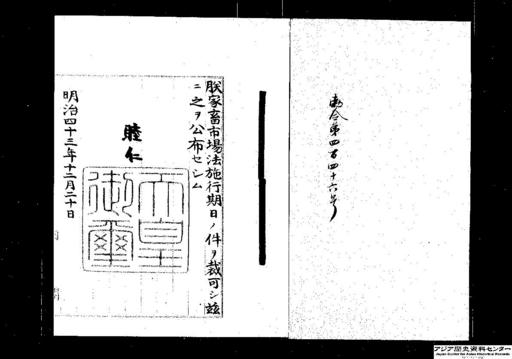 勅令第四百四十六号
朕家畜市場法施行期日ノ件ヲ裁可シ茲
ニ之ヲ公布セシム
睦仁
天皇御璽
明治四十三年十二月二十日
アジア歴史資料センター
Japan Center for Asian Historical Records